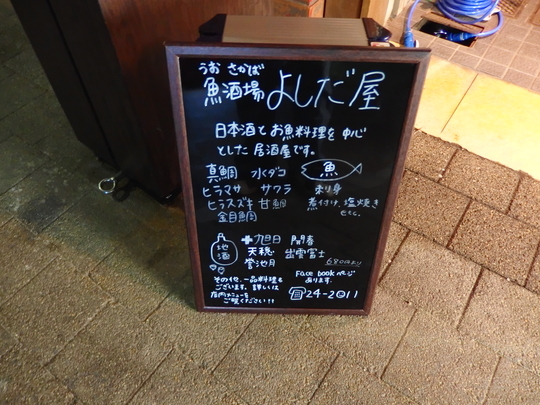 うお さかば
魚酒場 よしだ屋
日本酒とお魚料理を中心
とした居酒屋です。
真鯛 水ダコ 魚
ヒラマサ サワラ 刺身
ヒラスズキ 甘鯛 煮付け、塩焼き
金目鯛 etc.
地酒 十旭日 開春
天穏 出雲富士
誉池月 680円より
その他、一品料理も
ございます。詳しくは
店内メニューを
ご覧ください!!
Face bookページ
あります。
☎24-2011